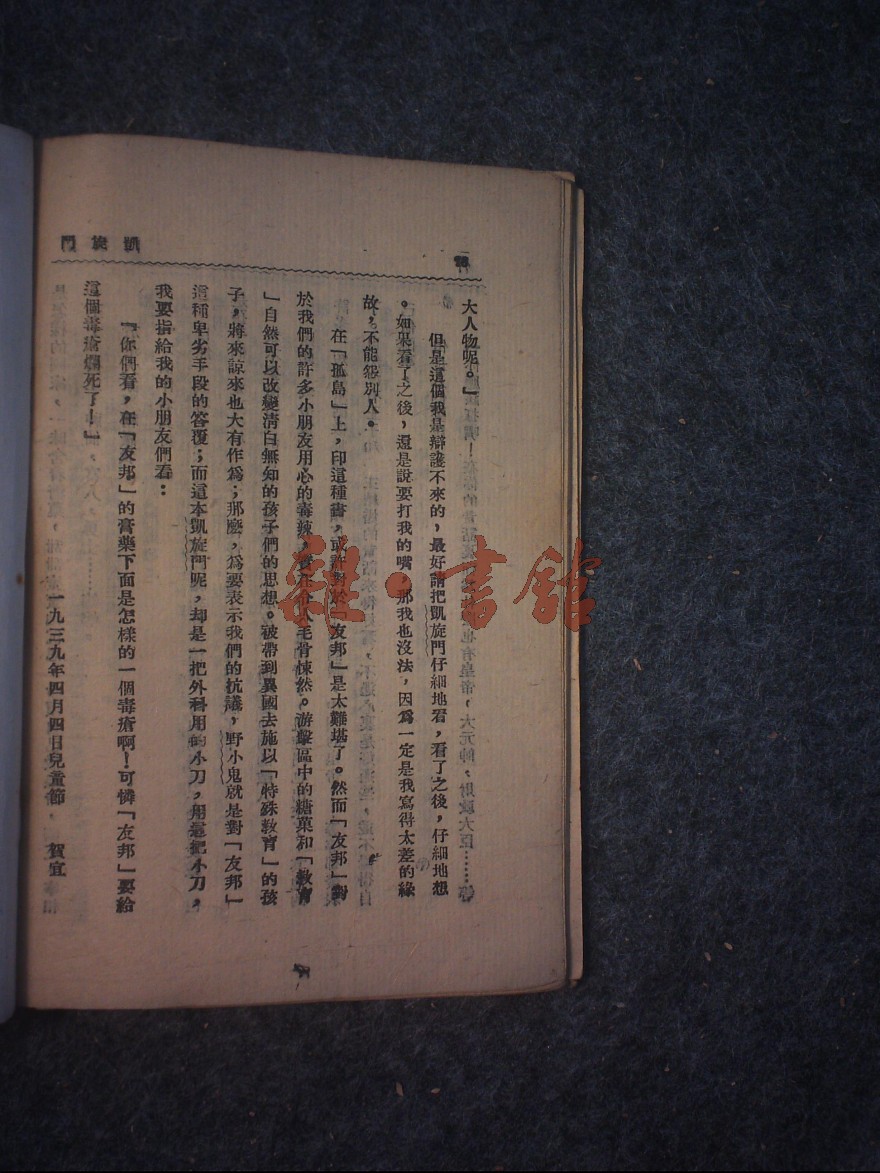 凱旋門
大人物呢。」
但是這個我是辯護不來的，最好請把凱旋門仔細地看，看了之後，仔細地想
。如果看了之後，還是說要打我的嘴，那我也沒法，因爲一定是我寫得太差的緣
故，不能怨別人。
在「孤島」上，印這種書，或許對於「友邦」是太難堪了。然而「友邦」對
於我們的許多小朋友用心的毒辣，實在令人毛骨悚然。游擊區中的糖菓和「教育
」自然可以改變清白無知的孩子們的思想。被帶到異國去施以「特殊教育」的孩
子，將來諒來也大有作爲；那麽，爲要表示我們的抗議，野小鬼就是對「友邦」
這種卑劣手段的答覆；而這本凱旋門呢，却是一把外科用的小刀，用這把小刀，
我要指給我的小朋友們看：
「你們看，在「友邦」的膏藥下面是怎樣的一個毒瘡啊！可憐「友邦」要給
這個毒瘡爛死了！」
一九三九年四月四日兒童節，賀宜
雜·書館